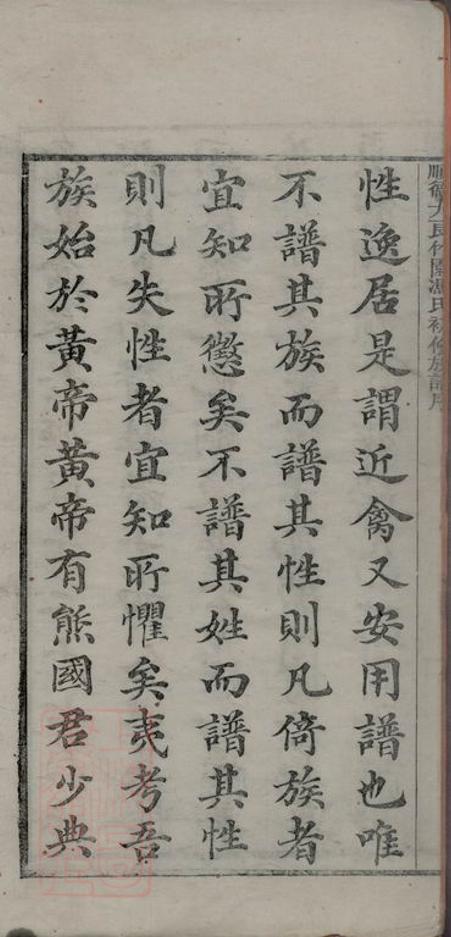 性逸居是謂近禽又安用譜也唯
不譜其族而譜其性則凡倚族者
宜知所懲矣不譜其姓而譜其性
則凡失性者宜知所懼矣夷考吾
族始於黃帝黃帝有熊國君少典